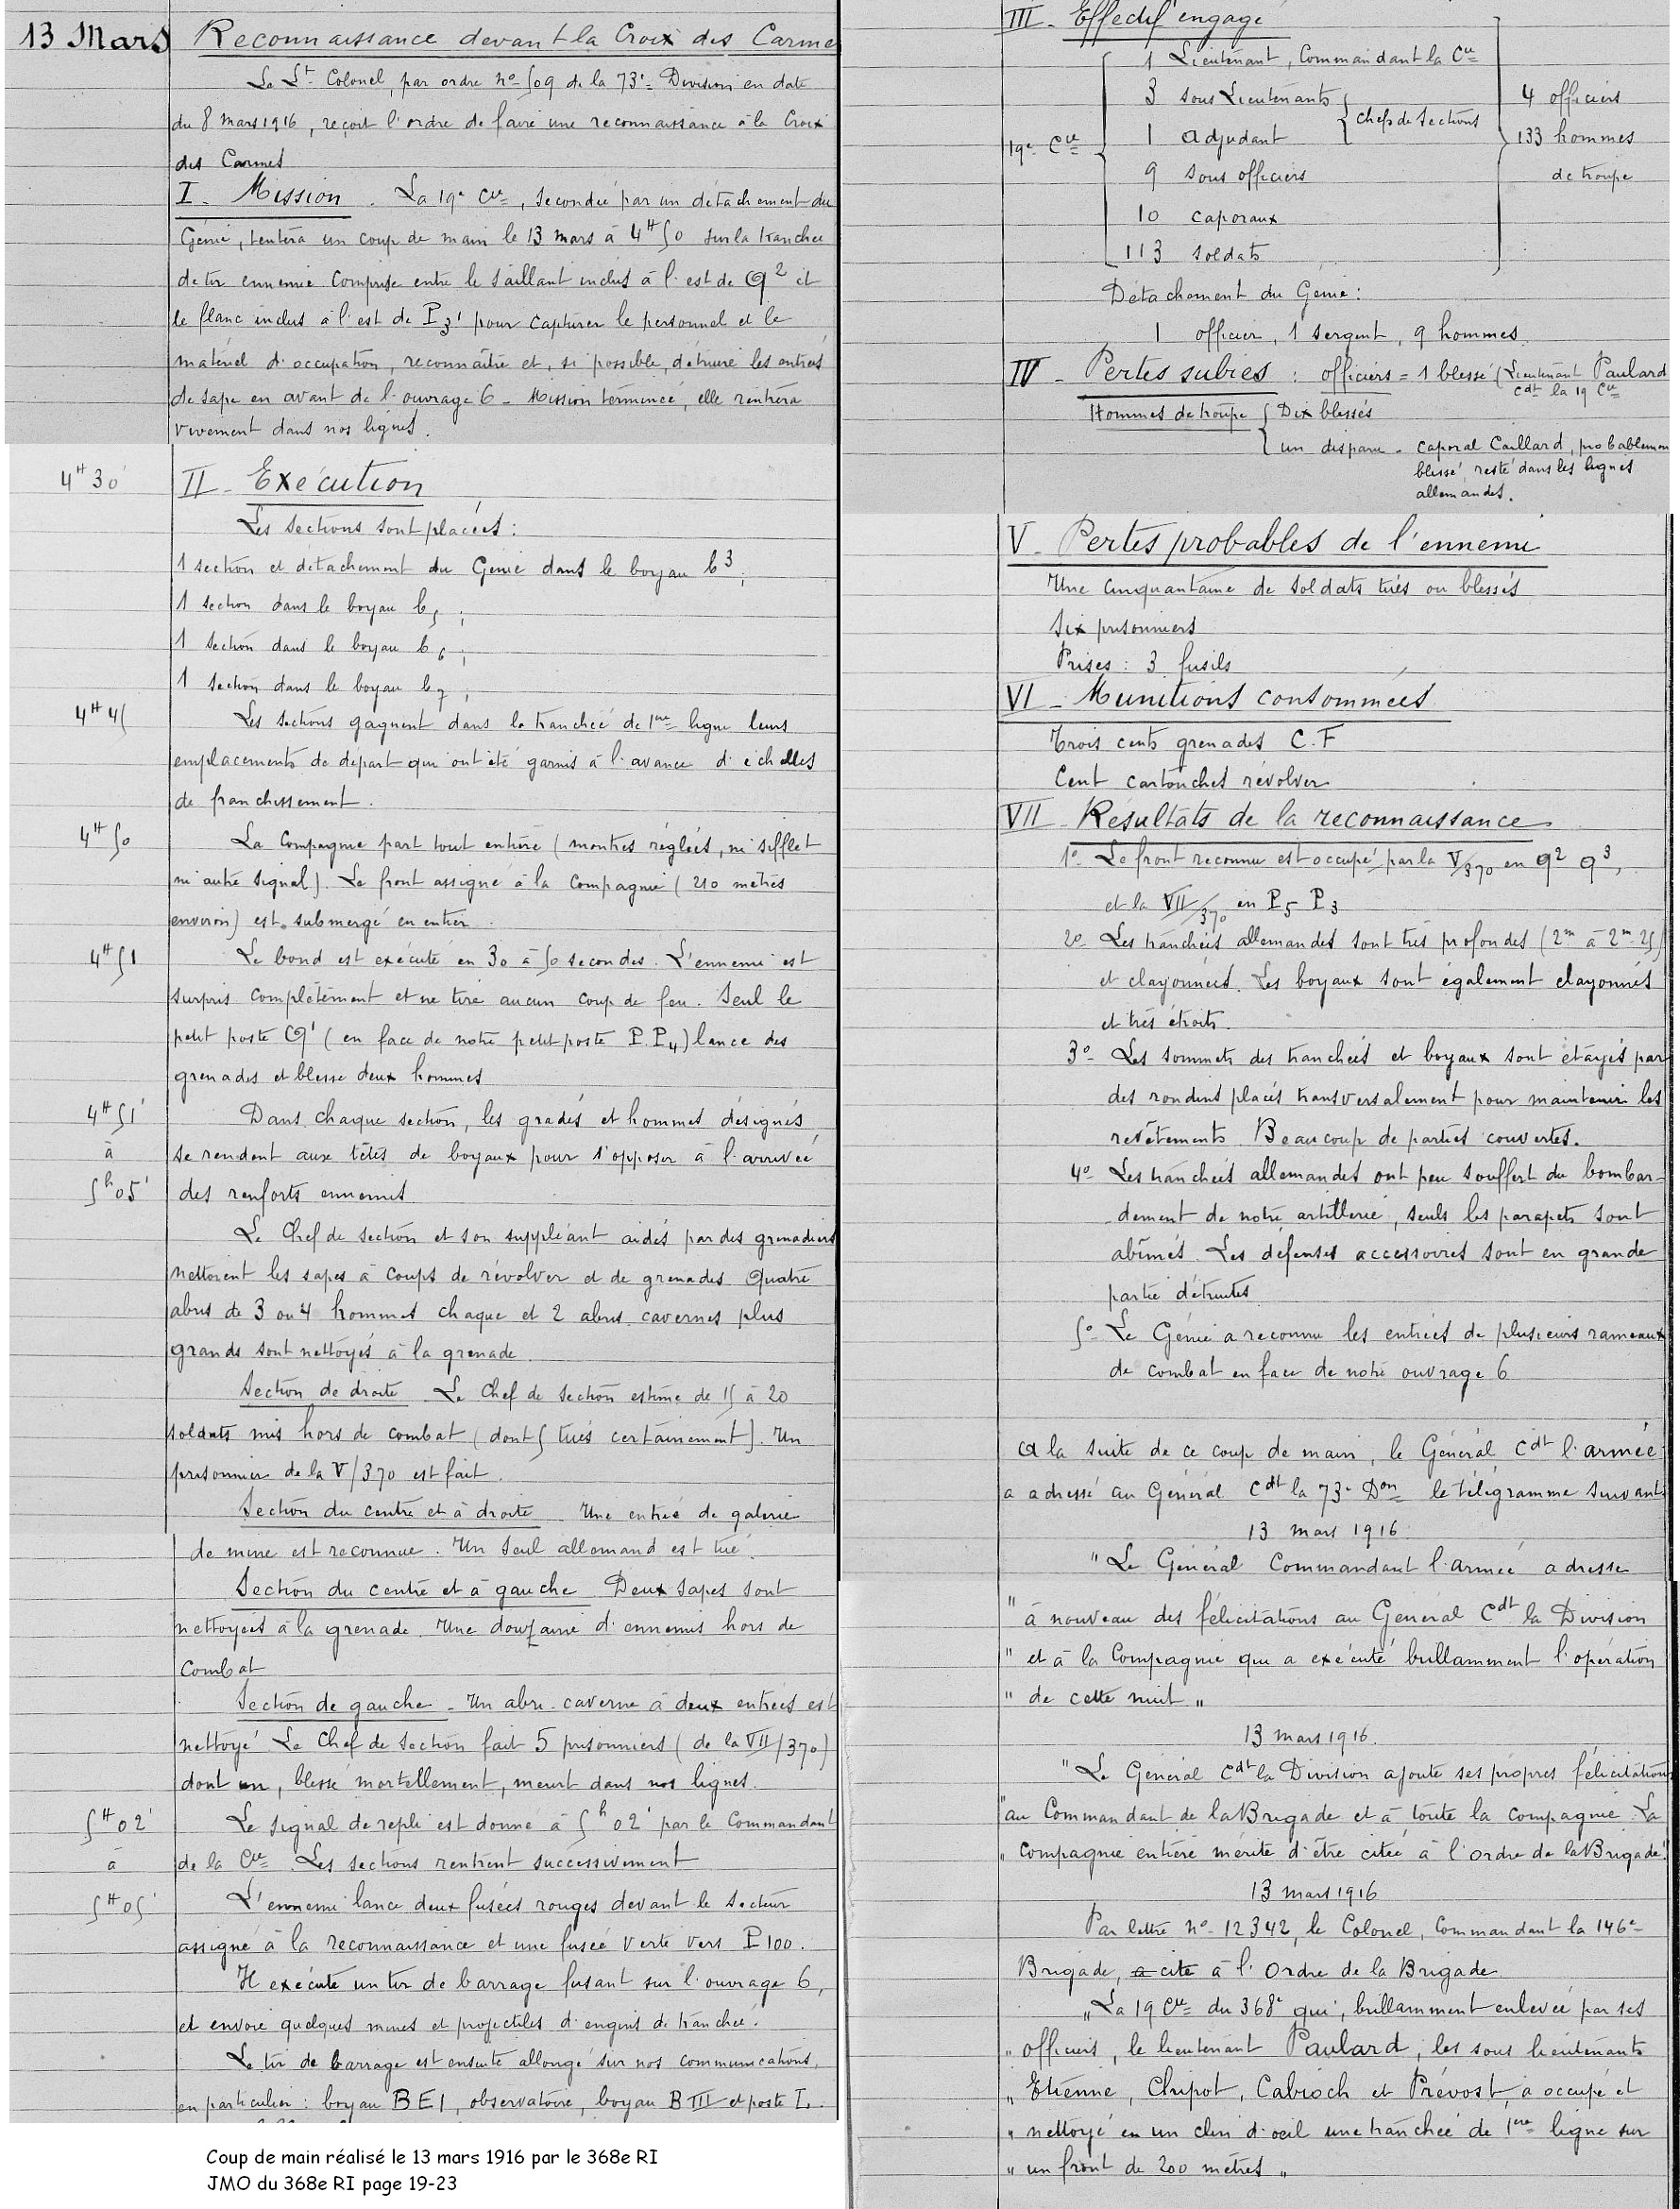 13 Mars Reconnaissance devant la Croix des Carmes
Le Lt Colonel, par ordre no 509 de la 73e Division en date
du 8 mars 1916, reçoit l'ordre de faire une reconnaissance à la Croix
des Carmes
I. Mission. La 19e Cie, secondée par un détachement du
Génie, tentera un coup de main le 13 mars à 4H50 sur la tranchée
de tir ennemie comprise entre le saillant inclus à l'est de Q2 et
le flanc inclus à l'est de P3' pour capturer le personnel et le
matériel d'occupation, reconnaître et, si possible, détruire les entrées
de sape en avant de l'ouvrage 6 - Mission terminée, elle rentrera
vivement dans nos lignes.
4H30 II - Exécution
Les sections sont placées :
1 section et détachement du Génie dans le boyau b3 ;
1 section dans le boyau b5 ;
1 section dans le boyau b6 ;
1 section dans le boyau b7 ;
4H45 Les sections gagnent dans la tranchée de 1ère ligne leurs
emplacements de départ qui ont été garnis à l'avance d'échelles
de franchissement.
4H50 La Compagnie part tout entière (montres réglées, ni sifflet
ni autre signal). Le front assigné à la Compagnie (210 mètres
environ) est submergé en entier.
4H51 Le bond est exécuté en 30 à 50 secondes. L'ennemi est
surpris complètement et ne tire aucun coup de feu. Seul le
petit poste Q1 (en face de notre petit poste P.P4) lance des
grenades et blesse deux hommes
4H51' Dans chaque section, les gradés et hommes désignés
à se rendent aux têtes de boyaux pour s'opposer à l'arrivée
5h05' des renforts ennemis
Le Chef de section et son suppléant aidés par des grenadiers
nettoient les sapes à coups de révolver et de grenades Quatre
abris de 3 ou 4 hommes chaque et 2 abris cavernes plus
grands sont nettoyés à la grenade.
Section de droite Le Chef de section estime de 15 à 20
soldats mis hors de combat (dont 5 tués certainement). Un
prisonnier de la V/370 est fait.
Section du centre et à droite Une entrée de galerie
de mine est reconnue. Un seul allemand est tué.
Section du centre et à gauche Deux sapes sont
nettoyées à la grenade. Une douzaine d'ennemis hors de
combat
Section de gauche - Un abri-caverne à deux entrées est
nettoyé. Le Chef de section fait 5 prisonniers (de la VII/370)
dont un, blessé mortellement, meurt dans nos lignes.
5H02' Le signal de repli est donné à 5h02' par le Commandant
à de la Cie. Les sections rentrent successivement
5H05' L'ennemi lance deux fusées rouges devant le secteur
assigné à la reconnaissance et une fusée verte vers P100.
Il exécute un tir de barrage fusant sur l'ouvrage 6,
et envoie quelques mines et projectiles d'engins de tranchée.
Le tir de barrage est ensuite allongé sur nos communications,
en particulier : boyau BE1, observatoire, boyau BIII et poste I.
Coup de main réalisé le 13 mars 1916 par le 368e RI
JMO du 368e RI page 19-23
III - Effectif engagé
1 Lieutenant, Commandant la Cie
3 sous Lieutenants 4 officiers
chefs de sections
19e Cie 1 adjudant 133 hommes
9 sous officiers de troupe
10 caporaux
113 soldats
Détachement du Génie :
1 officier, 1 sergent, 9 hommes.
IV - Pertes subies : officiers = 1 blessé (Lieutenant Paulard
Cdt la 19 Cie
Hommes de troupe Dix blessés
un disparu - caporal Caillard, probablement
blessé resté dans les lignes
allemandes.
V - Pertes probables de l'ennemi
Une cinquantaine de soldats tués ou blessés
Six prisonniers
Prises : 3 fusils
VI - Munitions consommées
Trois cents grenades C.F
Cent cartouches révolver
VII - Résultats de la reconnaissance
1o- Le front reconnu est occupé par la V/370 en Q2 Q3,
et la VII/370 en P5 P3
2o- Les tranchées allemandes sont très profondes (2m à 2m25)
et clayonnées. Les boyaux sont également clayonnés
et très étroits.
3o- Les sommets des tranchées et boyaux sont étayés par
des rondins placés transversalement pour maintenir les
revêtements. Beaucoup de parties couvertes.
4o- Les tranchées allemandes ont peu souffert du bombar-
dement de notre artillerie, seuls les parapets sont
abîmés. Les défenses accessoires sont en grande
partie détruites
5o- Le Génie a reconnu les entrées de plusieurs rameaux
de combat en face de notre ouvrage 6
A la suite de ce coup de main, le Général Cdt l'armée
a adressé au Général Cdt la 73e Don le télégramme suivant
13 mars 1916.
" Le Général Commandant l'armée adresse
" à nouveau des félicitations au Général Cdt la Division
" et à la Compagnie qui a exécuté brillamment l'opération
" de cette nuit "
13 mars 1916.
" Le Général Cdt la Division ajoute ses propres félicitations
" au Commandant de la Brigade et à toute la compagnie. La
" Compagnie entière mérite d'être citée à l'ordre de la Brigade."
13 mars 1916
Par lettre No 12342, le Colonel, Commandant la 146e
Brigade, a cité à l'Ordre de la Brigade
" La 19 Cie du 368e qui, brillamment enlevée par ses
" officiers, le lieutenant Paulard, les sous lieutenants
" Etienne, Chipot, Cabioch et Prévost, a occupé et
" nettoyé en un clin d'oeil une tranchée de 1ère ligne sur
" un front de 200 mètres "